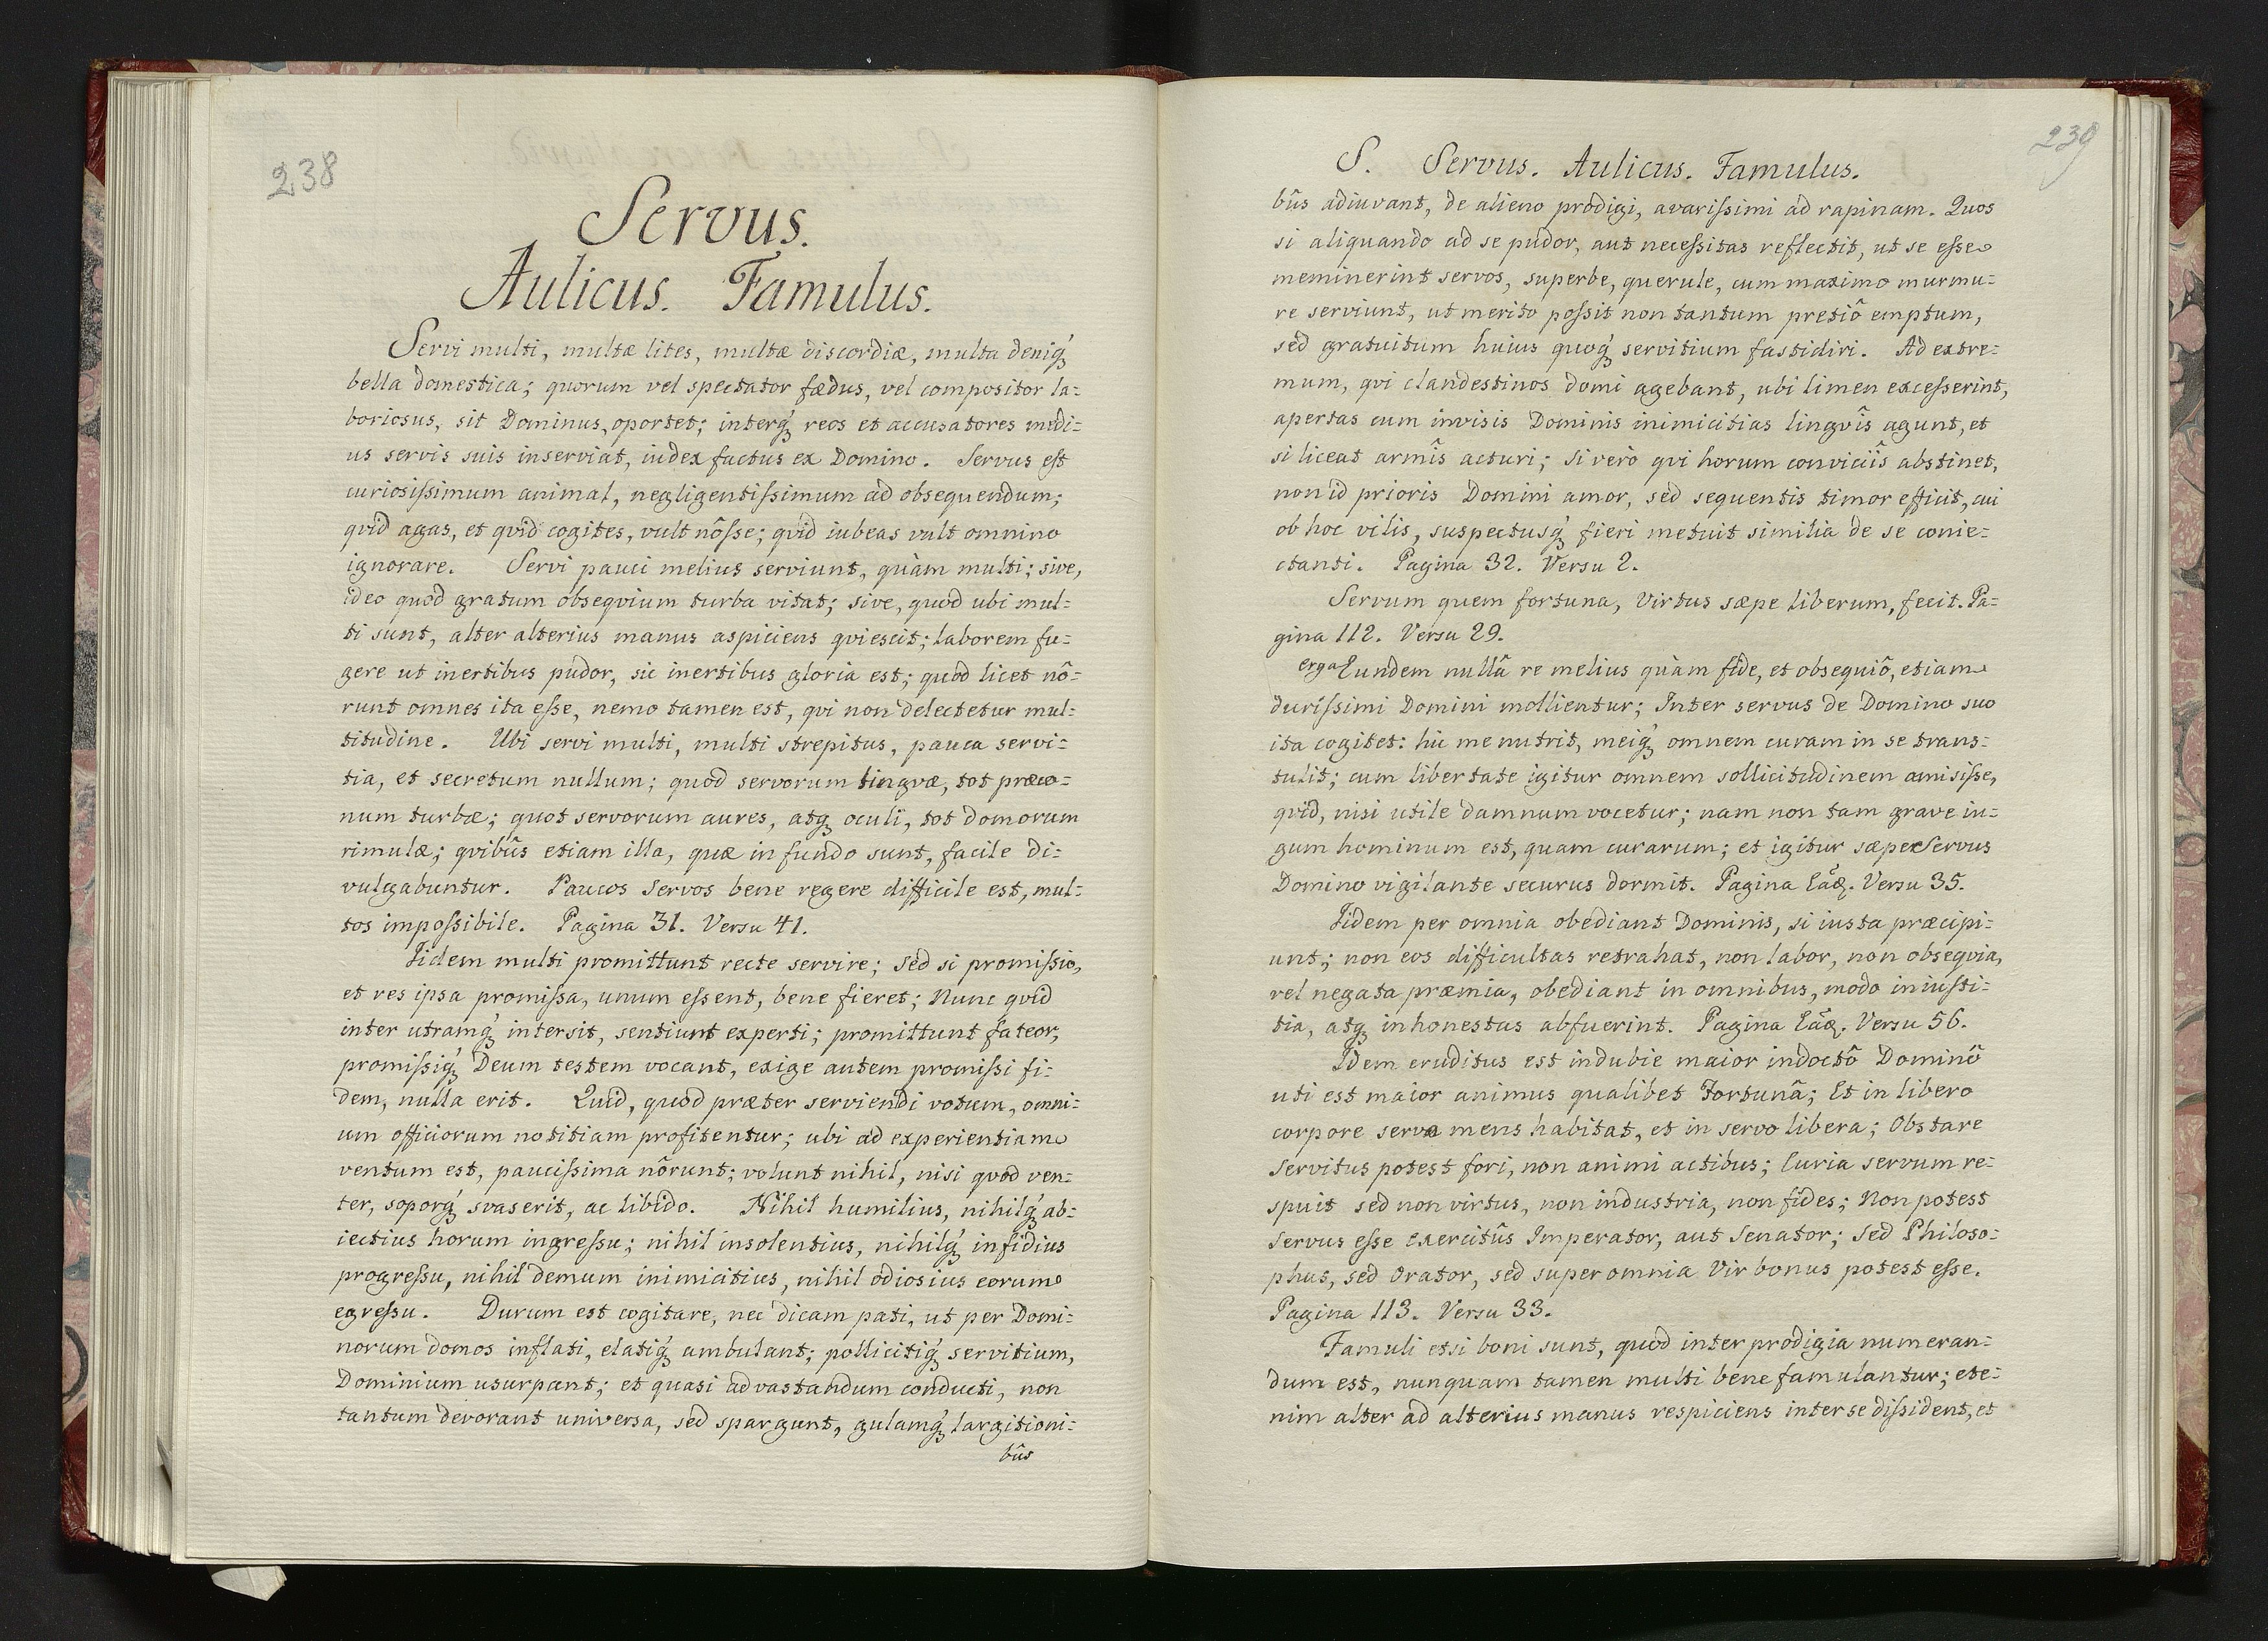 238
Servus.
Aulicus. Famulus.
Servi multi, multæ lites, multæ discordiæ, multa deniq́;
bella domestica; quorum vel spectator fædus, vel compositor la=
boriosus, sit Dominus, oportet; interq́; reos et accusatores medi=
us servis suis inserviat, iudex factus ex Domino. Servus est
curiosissimum animal, negligentissimum ad obsequendum;
qvid agas, et qvid cogites, vult nôsse; qvid iubeas vult omnino
ignorare. Servi pauci melius serviunt, quàm multi; sive,
ideo quod gratum obseqvium turba vitat; sive, quod ubi mul=
ti sunt, alter alterius manus aspiciens qviescit; laborem fu=
gere ut inertibus pudor, sic inertibus gloria est; quod licet nô=
runt omnes ita esse, nemo tamen est, qvi non delectetur mul=
titudine. Ubi servi multi, multi strepitus, pauca servi=
tia, et secretum nullum; quod servorum lingvæ, tot præco=
num turbæ; quot servorum aures, atq; oculi, tot domorum
rimulæ; qvibûs etiam illa, quæ in fundo sunt, facile di=
vulgabuntur. Paucos servos bene regere difficile est, mul=
tos impossibile. Pagina 31. Versu 41.
Iidem multi promittunt recte servire; sed si promissio,
et res ipsa promissa, unum essent, bene fieret; Nunc qvid
inter utramq́; intersit, sentiunt experti; promittunt fateor,
promissiq́; Deum testem vocant, exige autem promissi fi=
dem, nulla erit. Quid, quod præter serviendi votum, omni=
um officiorum notitiam profitentur; ubi ad experientiam
ventum est, paucissima nôrunt; volunt nihil, nisi qvod ven=
ter, soporq́; svaserit, ac libido. Nihil humilius, nihilq́; ab=
iectius horum ingressu; nihil insolentius, nihilq́; infidius
progressu, nihil demum inimicitius, nihil odiosius eorum
egressu. Durum est cogitare, nec dicam pati, ut per Domi=
norum domos inflati, elatiq́; ambulant; pollicitiq́; servitium,
Dominium usurpant; et quasi ad vastandum conducti, non
tantum devorant universa, sed spargunt, gulamq́; largitioni=
bûs
239
S. Servus. Aulicus. Famulus.
bûs adiuvant, de alieno prodigi, avarissimi ad rapinam. Quos
si aliquando ad se pudor, aut necessitas reflectit, ut se esse
meminerint servos, superbe, querule, cum maximo murmu=
re serviunt, ut merito possit non tantum pretiô emptum,
sed gratuitum huius quoq́; servitium fastidiri. Ad extre=
mum, qvi clandestinos domi agebant, ubi limen excesserint,
apertas cum invisis Dominis inimicitias lingvîs agunt, et
si liceat armîs acturi; si verò qvi horum conviciîs abstinet,
non id prioris Domini amor, sed sequentis timor efficit, cui
ob hoc vilis, suspectusq́; fieri metuit similia de se conie=
ctanti. Pagina 32. Versu 2.
Servum quem fortuna, Virtus sæpe liberum, fecit. Pa=
gina 112. Versu 29.
erga Eundem nullâ re melius quàm fide, et obsequiô, etiam
durissimi Domini mollientur; Inter servus de Domino suo
ita cogitet: hic me nutrit, meiq́; omnem curam in se trans=
tulit; cum libertate igitur omnem sollicitudinem amisisse,
qvid, nisi utile damnum vocetur; nam non tam grave iu=
gum hominum est, quam curarum; et igitur sæpe Servus
Domino vigilante securus dormit. Pagina Eâd. Versu 35.
Iidem per omnia obediant Dominis, si iusta præcipi=
unt; non eos difficultas retrahat, non labor, non obseqvia,
vel negata præmia, obediant in omnibus, modo iniusti=
tia, atq; inhonestas abfuerint. Pagina Eâd. Versu 56.
Idem eruditus est indubie maior indoctô Dominô
uti est maior animus qualibet Fortunâ; Et in libero
corpore serva mens habitat, et in servo libera; Obstare
servitus potest fori, non animi actibus; Curia servum re=
spuit sed non virtus, non industria, non fides; Non potest
servus esse exercitûs Imperator, aut Senator; sed Philoso=
phus, sed Orator, sed super omnia Vir bonus potest esse.
Pagina 113. Versu 33.
Famuli etsi boni sunt, quod inter prodigia numeran=
dum est, nunquam tamen multi bene famulantur; ete=
nim alter ad alterius manus respiciens inter se dissident, et